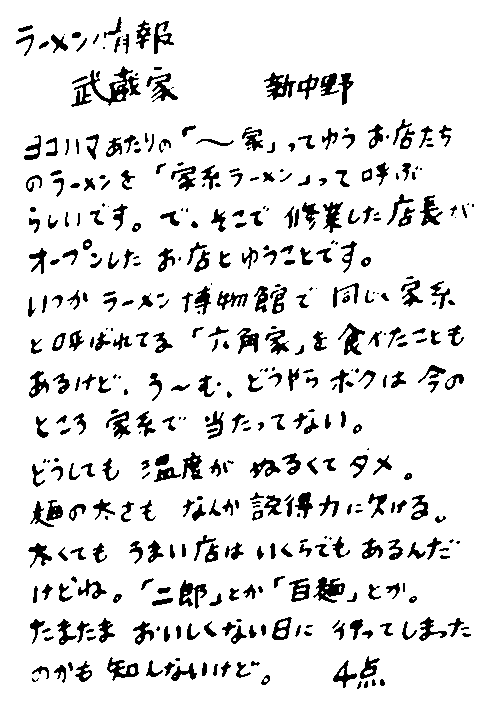 ラーメン情報
武蔵家　新中野
ヨコハマあたりの「〜家」ってゆうお店たち
のラーメンを「家系ラーメン」って呼ぶ
らしいです。で、そこで修業した店長が
オープンしたお店とゆうことです。
いつかラーメン博物館で同じく家系
と呼ばれてる「六角家」を食べたことも
あるけど、う〜む、どうやらボクは今の
ところ家系で当たってない。
どうしても温度がぬるくてダメ。
麺の太さもなんか説得力に欠ける。
太くてもうまい店はいくらでもあるんだ
けどね。「二郎」とか「百麺」とか。
たまたまおいしくない日に行ってしまった
のかも知んないけど。　4点